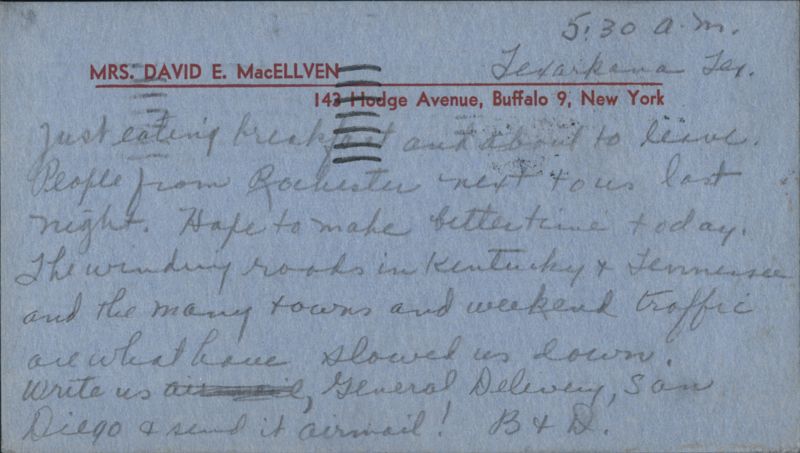 5:30 a.m.
Texarkana Tex.
MRS. DAVID E. MacELLVEN
143 Hodge Avenue, Buffalo 9, New York
Just eating breakfast and about to leave.
People from Rochester next to us last
night. Hope to make better time today.
The winding roads in Kentucky & Tennessee
and the many towns and weekend traffic
are what have slowed us down.
Write us airmail, General Delivery, San
Diego & send it airmail! B & D.